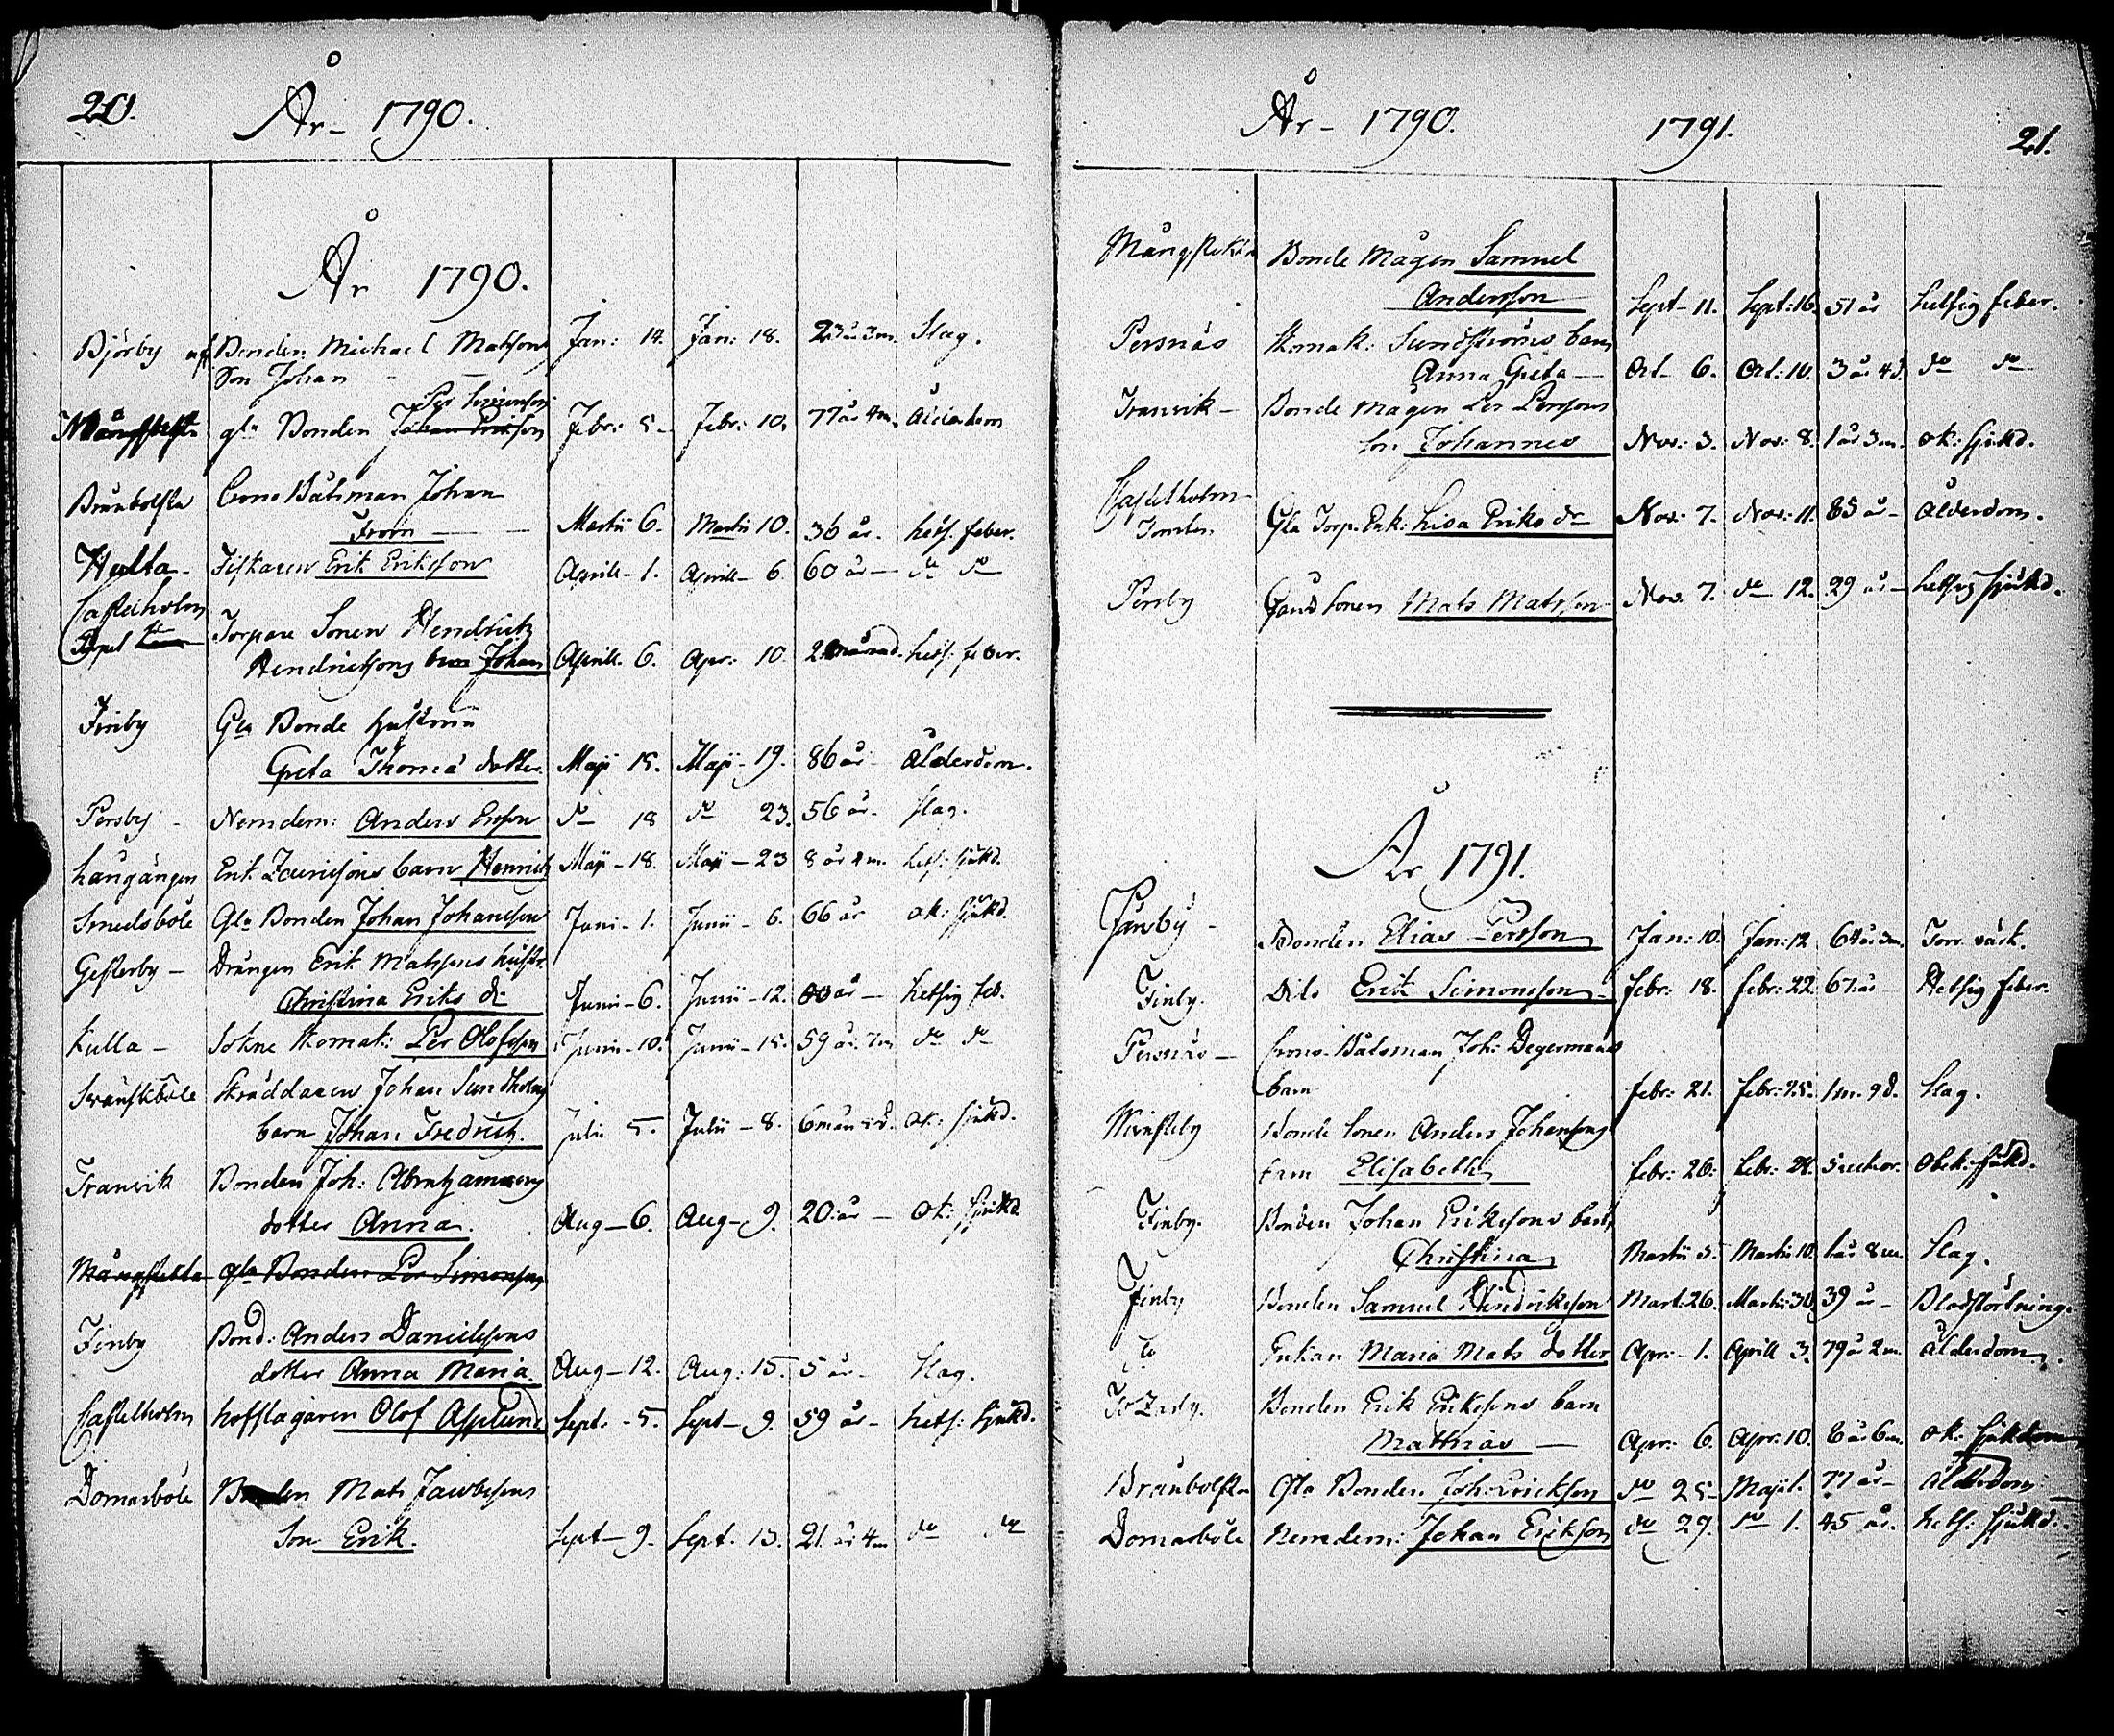 20. År – 1790.
År 1790.
Björby af Bonden Michael Matsons Jan: 14. Jan: 18. 23 år 3 m. Slag.
Son Johan
Per Simonson
Mångstekta gla Bonden Johan Erikson Febr: 5 – Febr: 10. 77 år 4 m. Ålderdom
Bränbolsta Crono Båtsman Johan
Frorn Martii 6. Martii 10. 36 år. hets. feber.
Hulta – Fiskaren Erik Eriksson Aprill – 1. Aprill – 6. 60 år – do do
Castelholm Torpare Sonen Hendrich
Hendrichsons barn Johan Aprill. 6. Apr: 10. 2 månad. hets. feber.
Finby Gla Bonde hustrun
Greta Thoma dotter. Maji 15. Maji – 19. 86 år – Ålderdom.
Persby – Nemdem: Anders Ersson do 18 do 23. 56 år – slag.
Långängen Erik Zarissons barn Henrich Maji – 18. Maji – 23 8 år 2 m. hets: sjukd.
Smedsböle Gla Bonden Johan Johansson Junii – 1. Junii – 6. 66 år ok: sjukd.
Gesterby – Drängen Erik Matssons hustr.
Christina Eriks dr Junii – 6. Junii – 12. år – hetsig feb.
Kulla – Sokne skomak: Per Olofsson Junii – 10. Junii – 15. 59 år 7 m do do
Svänskböle Skräddaren Johan Sundholms
barn Johan Fredrich. Julii 5. Julii – 8. 6 mån ok: sjukd.
Tranvik Bonden Joh: Abrahamsons
dotter Anna. Aug – 6. Aug – 9. 20 år – ok: sjukd
Mångstekta gla Bonden Per Simonson
Finby Bond: Anders Danielsons
dotter Anna Maria. Aug – 12. Aug: 15. 5 år – slag.
Castelholm hofslagaren Olof Asplund. Sept. – 5. Sept – 9. 59 år – hets: sjukd.
Domarböle Bonden Mats Jacobssons
Son Erik. Sept – 9. Sept. 13. 21 år 4 m do do
År – 1790. 1791. 21.
Mångstekta Bonde Mågen Samuel
Andersson Sept – 11. Sept: 16. 51 år hetsig feber.
Persnäs skomak: Sundströms barn
Anna Greta – Oct – 6. Oct: 10. 3 år 4 d. do do
Tranvik – Bonde Mågen Per Perssons
Son Johannes Nov: 3. Nov: 8. 1 år 3 m. ok: sjukd.
Castelholm
Gla Torp. Enk: Lisa Eriks dr Nov: 7. Nov: 11. 85 år – ålderdom.
Persby Sonen Mats Matsson Nov. 7. do 12. 29 år – hetsig sjukd.
År 1791.
Pärsby – Bonden Elias Persson Jan: 10. Jan: 12 64 år 3 m. Torr värk.
Finby. Dito Erik Simonsson – febr: 18. febr: 22 67 år Hetsig feber.
Persnäs – Crono Båtsman Joh: Degermans
barn febr: 21. febr: 25. 1 m. 9 d. Slag.
Bonde Sonen Anders Johansons
barn Elisabeth febr: 26. febr: 28. 5 veckor. Obek: sjukd.
Finby. Bonden Johan Eriksons barn
Christina Martii 5. Martii 10. 1 år 8 m. Slag.
Finby Bonden Samuel Hindriksson Mart: 26. Martii 30. 39 år – Blodstörtning.
do Enkan Maria Mats dotter Apr: – 1. Aprill 3. 79 år 2 m. ålderdom.
Bonden Erik Erikssons barn
Matthias – Apr: 6. Apr: 10. 6 år 6 m. ok: sjukdom
Bränbolsta Gla Bonden Joh: Erickson do 25 – Maji 1. 77 år – Ålderdom
Domarböle Nemdem: Johan Erikson do 29. do 1. 45 år. hets: sjukd.